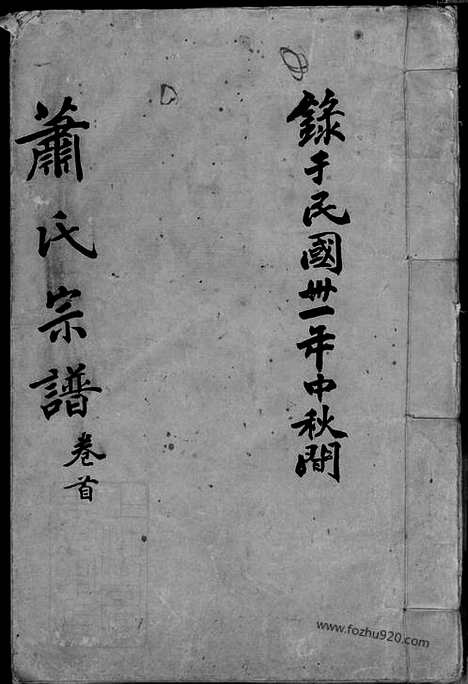 錄于民國卅一年中秋間
蕭氏宗譜
卷首
www.fozhu920.com